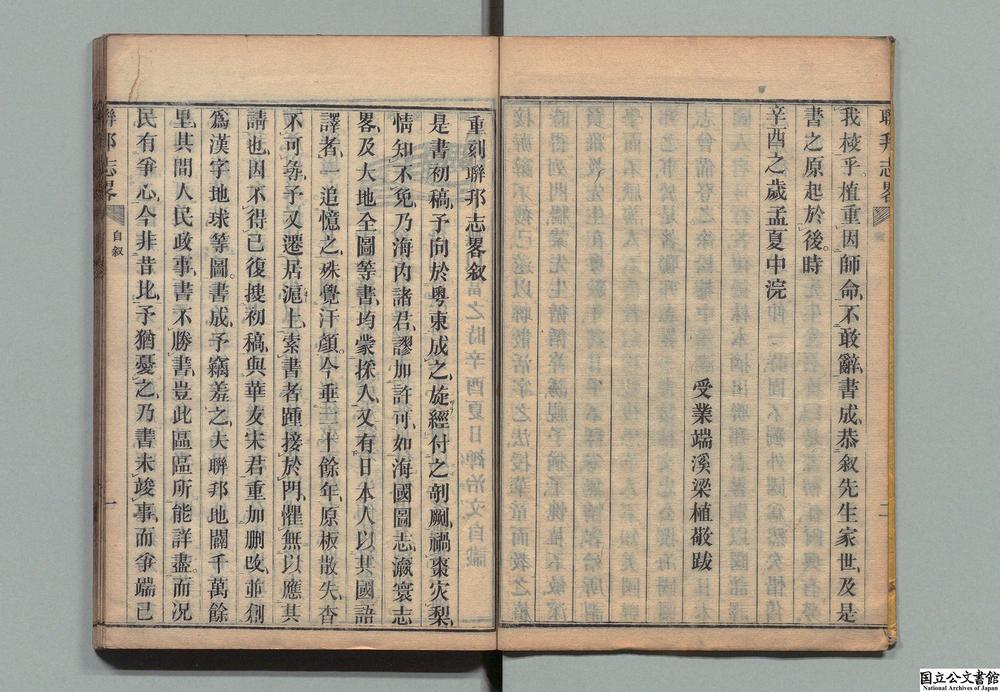 聯邦志畧
二
我梭乎。植重因師命、不敢辭書成、恭叙先生家世、及是
書之原起於後。時
辛酉之歲孟夏中浣
受業端溪梁植敬跋
重刻聯邦志畧叙
是書初稿、予向於粵東成之、旋經付之剞劂、禍棗灾梨、
情知不免、乃海內諸君、謬加許可、如海國圖志、瀛寰志
畧、及大地全圖等書、均蒙採入、又有日本人以其國語
譯者、一追憶之、殊覺汗顏。今垂二十餘年、原板散失、杳
不可尋、予又遷居滬上、索書者踵接於門、懼無以應其
請也、因不得已、復搜初稿、與華友宋君重加删改、並創
爲漢字地球等圖。書成、予竊羞之、夫聯邦地闊千萬餘
里、其間人民政事、書不勝書、豈此區區所能詳盡、而況
民有爭心、今非昔比、予猶憂之、乃書未竣事、而爭端已
聯邦志畧
自叙
一
国立公文書館
National Archives of Japan